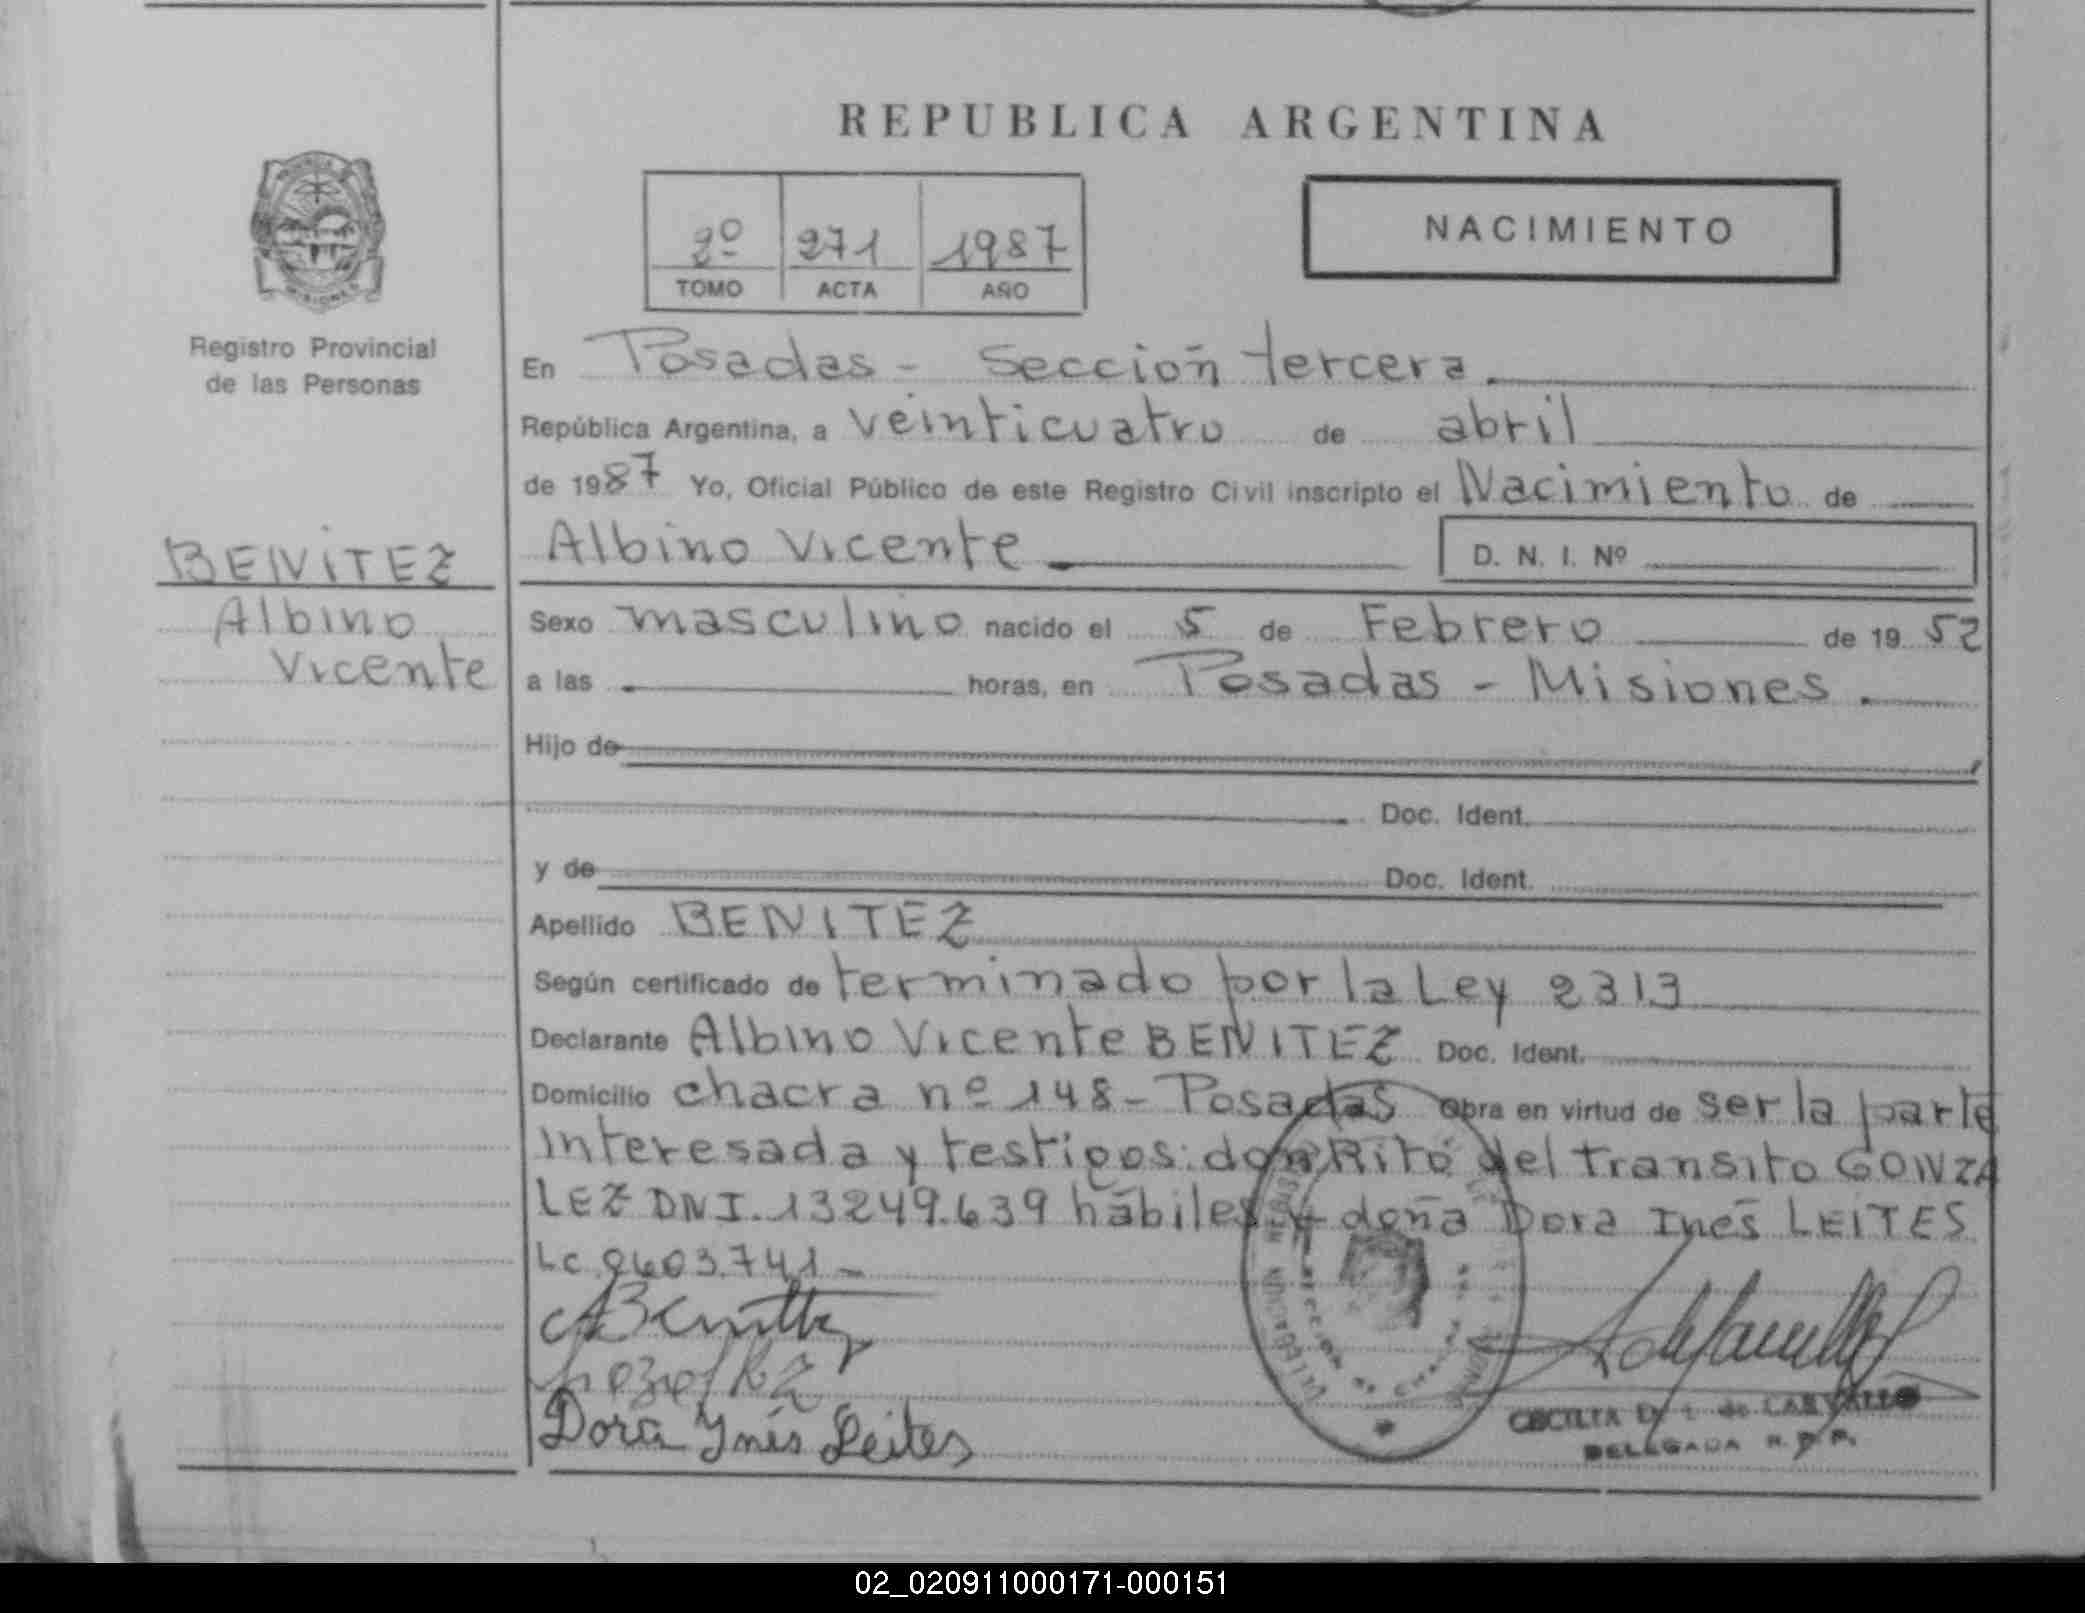 REPUBLICA ARGENTINA
PROVINCIA
MISIONES
Registro Provincial
de las Personas
2º 271 1987
TOMO ACTA AÑO
NACIMIENTO
En Posadas - Sección tercera.
República Argentina, a veinticuatro de abril
de 1987 Yo, Oficial Público de este Registro Civil inscripto el Nacimiento de
BENITEZ
Albino
Vicente
Albino Vicente
D. N. I. Nº
Sexo masculino nacido el 5 de Febrero de 19 52
a las horas, en Posadas - Misiones.
Hijo de
Doc. Ident.
y de Doc. Ident.
Apellido BENITEZ
Según certificado de terminado por la Ley 2313
Declarante Albino Vicente BENITEZ Doc. Ident.
Domicilio chacra nº 148 - Posadas Obra en virtud de ser la parte
interesada y testigos: don Rito del Transito GONZA
LEZ DNI. 13249.639 hábiles y doña Dora Inés LEITES
Lc 9603.741 -
ABenitez
Dora Ynés Leites
CECILIA de CARVALLO
DELEGADA R. P. P.
02_020911000171-000151